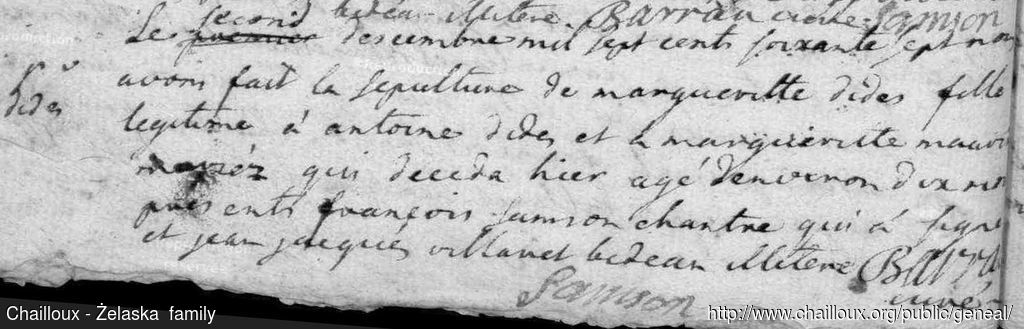 bedeau illitere. Barrau curé. Samson
second
Le premier descembre mil sept cents soixante sept nous
avons fait la sepulture de margueritte dides fille
dides
legitime à antoine dides et a margueritte
mariéz qui deceda hier agé denviron dix
presents françois samson chantre qui à signé
et jean jacques villanet bedeau illitere
curé
Samson
Chailloux - Żelaska family
http://www.chailloux.org/public/geneal/